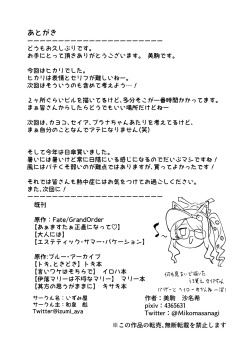 あとがき
どうもお久しぶりです。
お手にとって頂きありがとうございます。 美駒です。
今回はヒカリでした。
ヒカリは表情とセリフが難しいねー。
次回はそういうのも含めて考えよう…！
２ヶ所ぐらいビルを描いてるけど、多分そこが一番時間かかってます。
まぁ皆さんからしたらどうでもいい場所だろうけどなー
次回は、カヨコ、セイア、プラナちゃんあたりを考えてるけど、
まぁ自分のことなんでアテになりません(笑)
そして今年は日傘買いました。
暑いは暑いけど常に日陰にいる感じになるのでだいぶマシですね！
風にはバチくそ弱いのが難点ではありますが、買ってよかったです！
それでは皆さんも熱中症にはお気をつけてお過ごしください。
また、次回に！
既刊
原作：Fate/GrandOrder
【あぁますたぁ正直になって♡】
【大人には】
【エステティック・サマー・バケーション】
原作：ブルー・アーカイブ
【トキ、ときどき】 トキ本
【言いワケはそちらで】 イロハ本
【伊落マリーは不埒なマリー】 マリー本
【其方の思うがままに】 キサキ本
サークル名：いずみ屋
サークル主：和泉 彪
Twitter@Izumi_ava
作者：美駒 沙名希
pixiv：4365631
Twitter：@Mikomasanagi
※この作品の転売、無断転載を禁止します